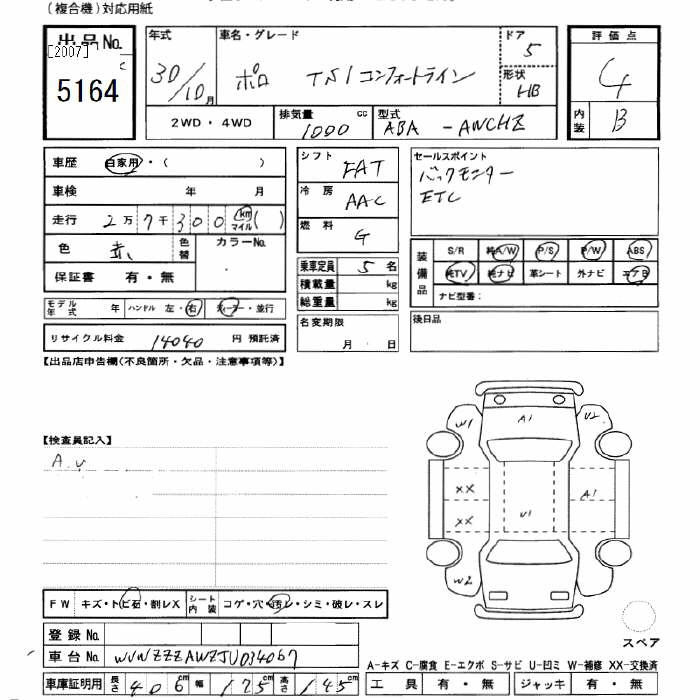 (複合機)対応用紙
出品No.
[2007]
C
5164
年式
30/10月
車名・グレード
ポロ TSIコンフォートライン
ドア
5
形状
HB
評価点
4
内装
B
2WD・4WD
排気量
1000
cc
型式
ABA -AWCHZ
車歴 自家用・( )
車検 年 月
走行 2万7千300 km マイル( )
色 赤 色替 カラーNo.
保証書 有・無
モデル年式 年 ハンドル 左・右 ディーラー・並行
リサイクル料金 14040 円 預託済
シフト FAT
冷房 AAC
燃料 G
乗車定員 5 名
積載量 kg
総重量 kg
名変期限 月 日
セールスポイント
バックモニター
ETC
装備品
S/R 純A/W P/S P/W ABS
純TV 純ナビ 革シート 外ナビ エアB
ナビ型番:
後日品
【出品店申告欄(不良箇所・欠品・注意事項等)】
【検査員記入】
A.U
W1 A1 U2
XX A1
XX U1
W2
スペア
FW キズ・トビ石・割レX シート内装 コゲ・穴・汚レ・シミ・破レ・スレ
登録No.
車台No. WVWZZZAWZJU034067
車庫証明用 長さ 406cm 幅 175cm 高さ 145cm
A-キズ C-腐食 E-エクボ S-サビ U-凹ミ W-補修 XX-交換済
工具 有・無 ジャッキ 有・無